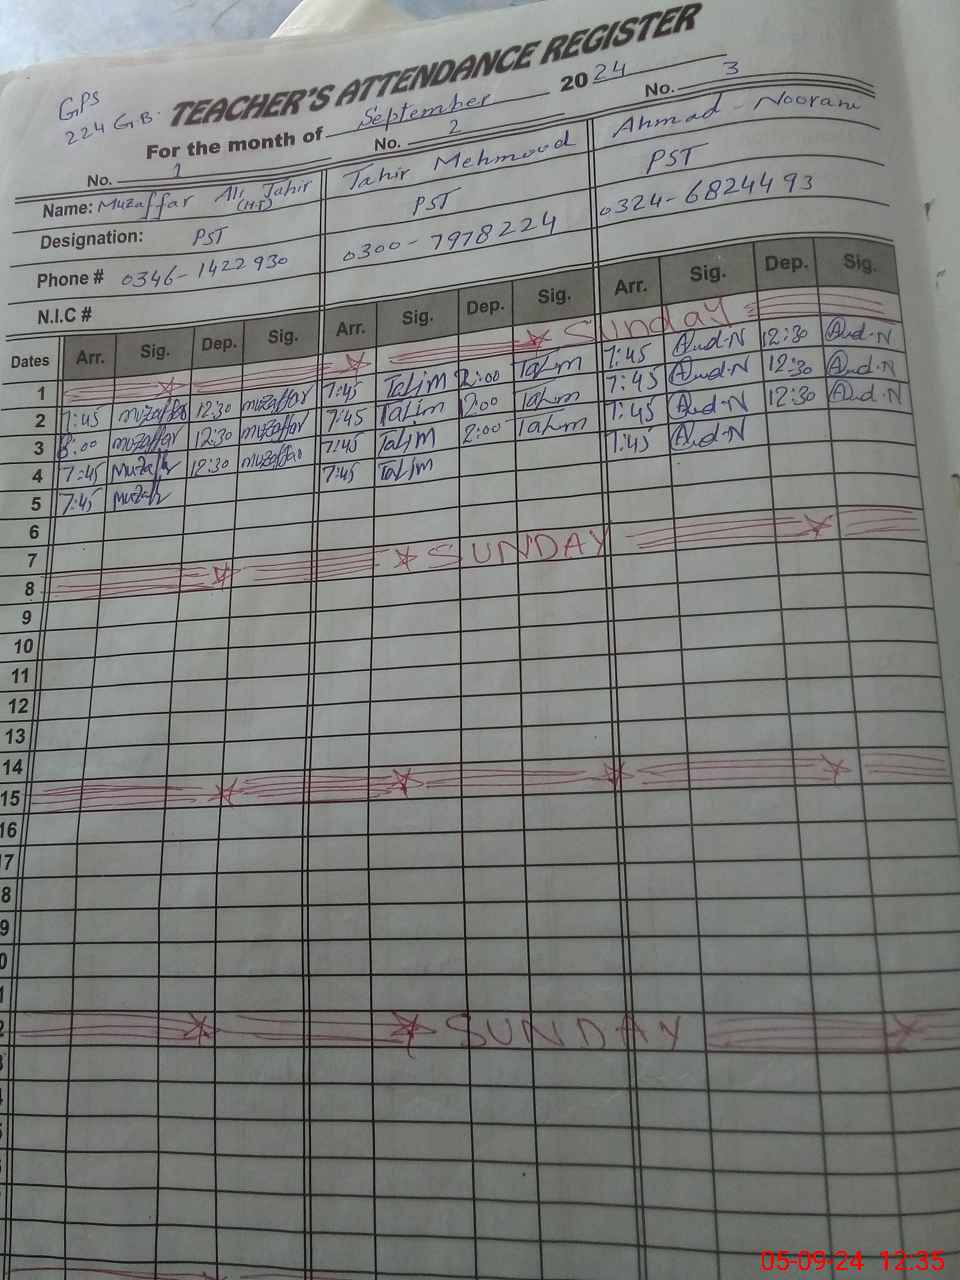 GPS
224 G.B.
TEACHER'S ATTENDANCE REGISTER
For the month of September 2024
No. 1 No. 2 No. 3
Name: Muzaffar Ali Tahir (H.T) Tahir Mehmood Ahmad - Noorani
Designation: PST PST PST
Phone # 0346-1422930 0300-7978224 0324-6824493
N.I.C #
Dates Arr. Sig. Dep. Sig. Arr. Sig. Dep. Sig. Arr. Sig. Dep. Sig.
1 Sunday
2 7:45 muzaffar 12:30 muzaffar 7:45 2:00 7:45 12:30
3 8:00 muzaffar 12:30 muzaffar 7:45 2:00 7:45 12:30
4 7:45 Muzaffar 12:30 muzaffar 7:45 2:00 7:45 12:30
5 7:45 7:45 7:45
6
7
8 SUNDAY
9
10
11
12
13
14
15
16
7
8
9
0
1
2 SUNDAY
3
4
5
05-09-24 12:35